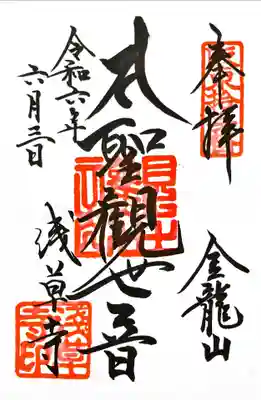 奉拝
金龍山
聖観世音
浅草寺
令和六年
六月三日